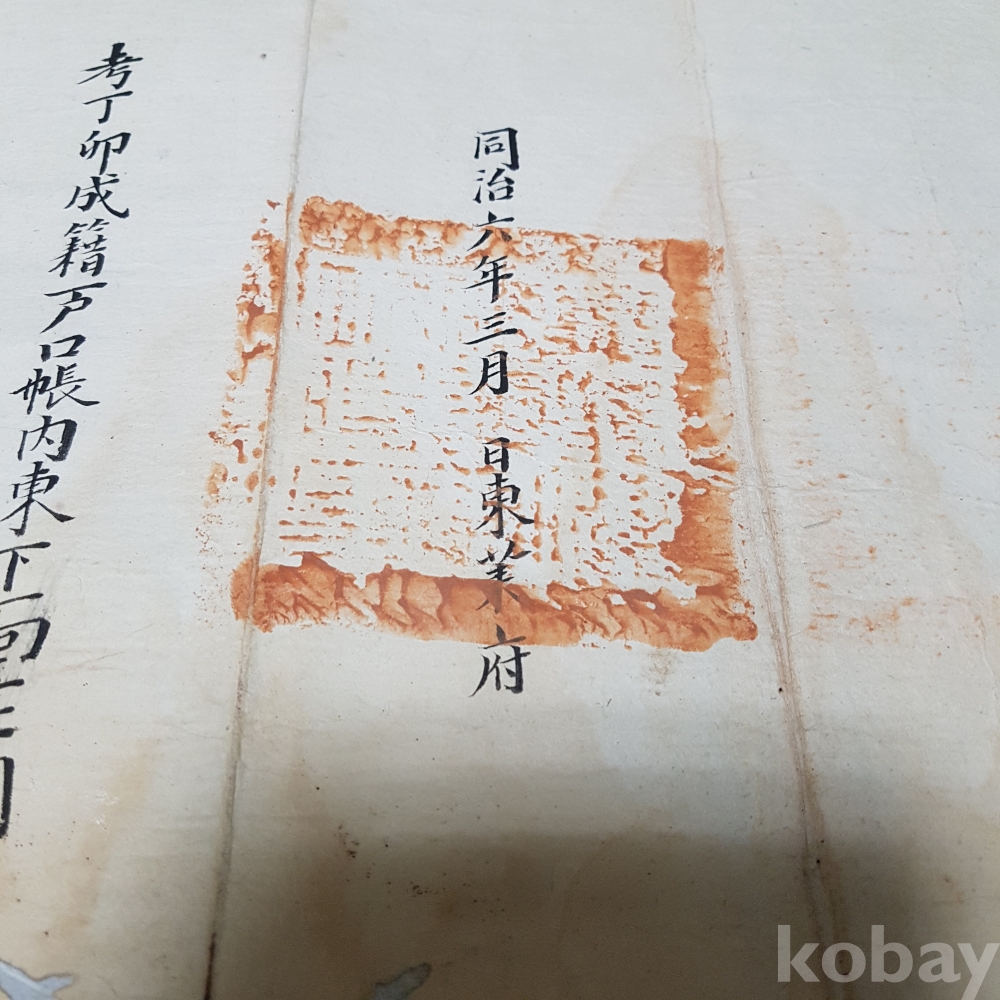 同治六年三月 日東萊府
考丁卯成籍戶口帳內東下
kobay